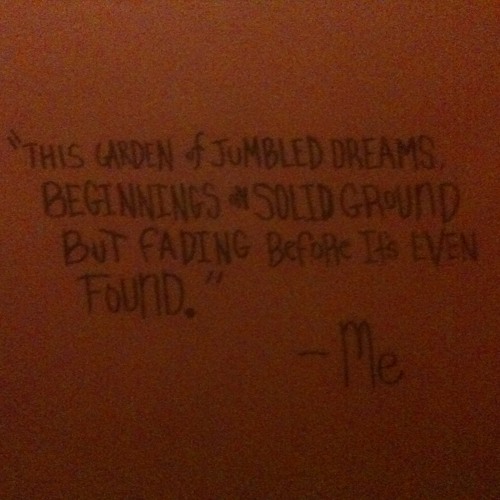 "THIS GARDEN of JUMBLED DREAMS,
BEGINNINGS on SOLID GROUND
BUT FADING BEFORE It's EVEN
FOUND."
- Me